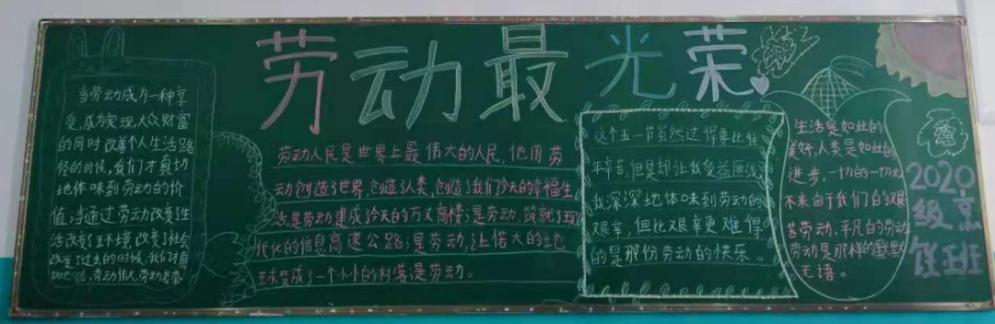 劳动最光荣
当劳动成为一种享
受,成为实现大众财富
的同时 改善个人生活路
径的时候,我们才真切
地体味到劳动的价
值;当通过劳动改变了生
活改变了环境 改变了社会
劳动人民是世界上最伟大的人民,他用劳
动创造了世界,创造了人类,创造了我们今天的幸福生
活是劳动建成了今天的万丈高楼;是劳动,筑就了现
代化的信息高速公路;是劳动,让偌大的地
球变成了一个小小的村落是劳动。
这个五一节虽然过得要比往
年辛苦,但是却让我受益匪浅
我深深地体味到劳动的
艰辛,但比艰辛更难得
的是那份劳动的快乐。
生活是如此的
美好,人类是如此的
进步,一切的一切无
不来自于我们的艰
苦劳动,平凡的劳动
劳动是那样的默默
无语。
2020
级烹
饪班